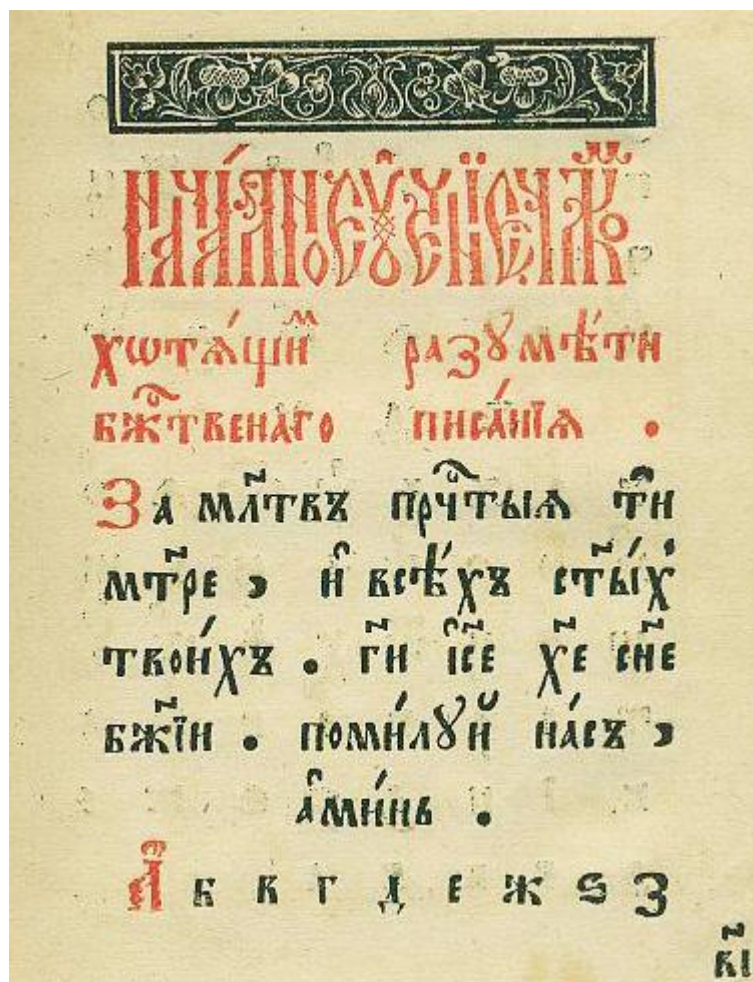 Нача́льное ᲂу҆че́нїе человѣ́кѡмъ
хотѧ́щиⷨ разꙋмѣ́ти
бж҇твенаго писа́нїѧ .
За мл҃твъ прч҇тыѧ тѝ
мт҃ре , и҆ всѣ́хъ ст҃ы́х̾
твои́хъ . гп҃и і҆с҃е хр҃е сн҃е
бж҃їи . поми́лꙋй на́съ ,
а҆ми́нь .
А҆ б в г д е ж ѕ з
в҃і